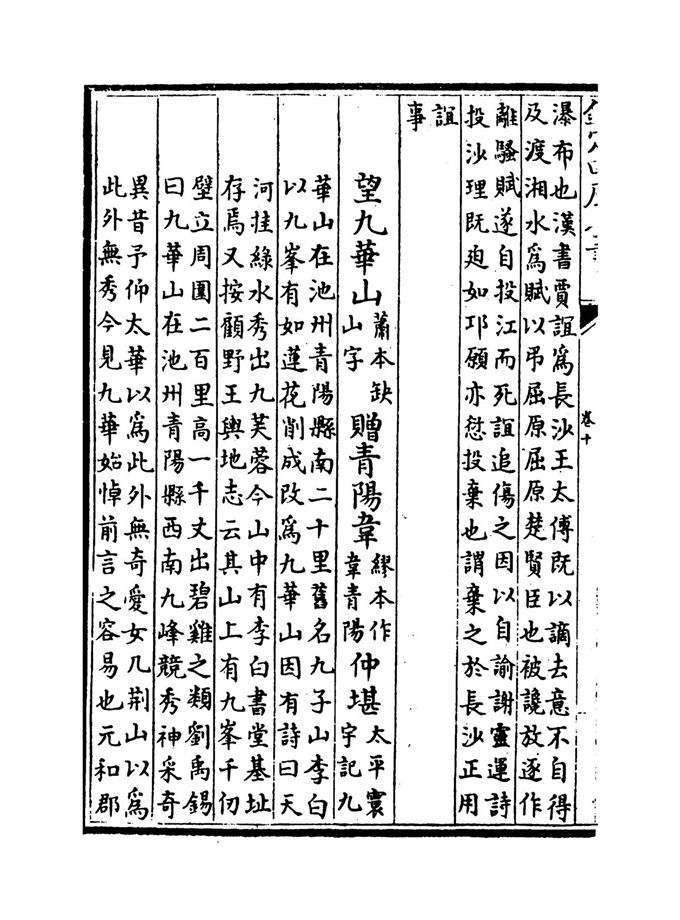 卷十
瀑布也漢書賈誼為長沙王太傅既以謫去意不自得
及渡湘水為賦以弔屈原屈原楚賢臣也被讒放逐作
離騷賦遂自投江而死誼追傷之因以自諭謝靈運詩
投沙理既廹如卭願亦愆投棄也謂棄之於長沙正用
誼
事
望九華山蕭本缺山字贈青陽韋繆本作韋青陽仲堪太平寰宇記九
華山在池州青陽縣南二十里舊名九子山李白
以九峯有如蓮花削成改為九華山因有詩曰天
河挂綠水秀出九芙蓉今山中有李白書堂基址
存焉又按顧野王輿地志云其山上有九峯千仞
壁立周圍二百里高一千丈出碧雞之類劉禹錫
曰九華山在池州青陽縣西南九峰競秀神采奇
異昔予仰太華以為此外無奇愛女几荆山以為
此外無秀今見九華始悼前言之容易也元和郡